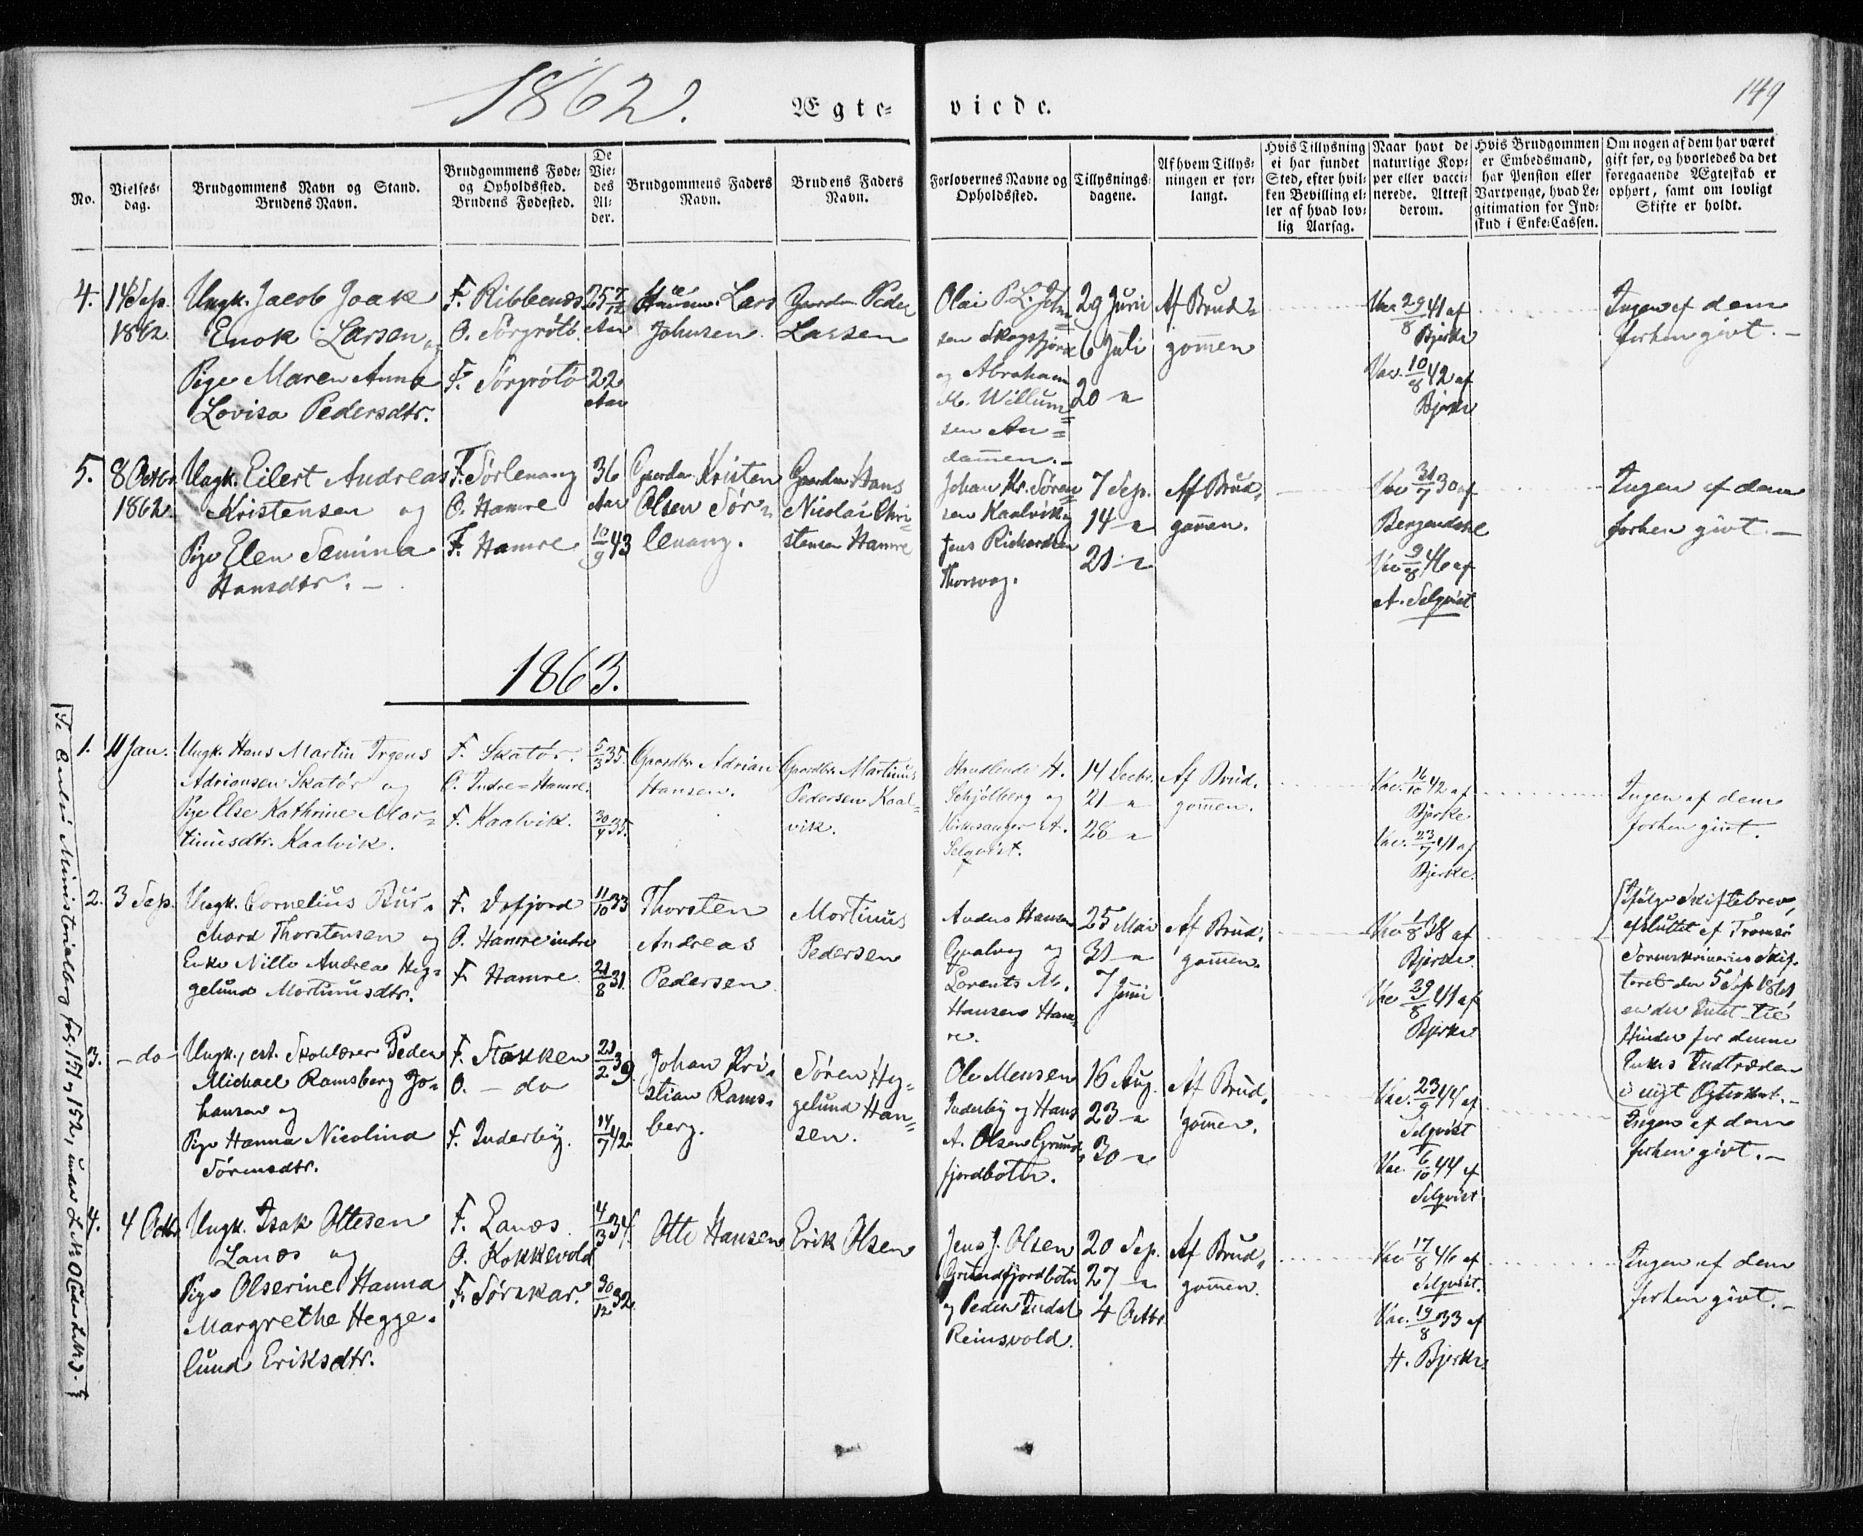 1862.
Ægte- viede.
149
No.
Vielses-
dag.
Brudgommens Navn og Stand.
Brudens Navn.
Brudgommens Føde-
og Opholdssted.
Brudens Fødested.
De
Vie-
des
Al-
der.
Brudgommens Faders
Navn.
Brudens Faders
Navn.
Forlovernes Navne og
Opholdssted.
Tillysnings-
dagene.
Af hvem Tillys-
ningen er for-
langt.
Hvis Tillysning
ei har fundet
Sted, efter hvil-
ken Bevilling el-
ler af hvad lov-
lig Aarsag.
Naar havt de
naturlige Kop-
per eller vacci-
nerede. Attest
derom.
Hvis Brudgommen
er Embedsmand,
har Pension eller
Vartpenge, hvad Le-
gitimation for Ind-
skud i Enke-Cassen.
Om nogen af dem har været
gift før, og hvorledes da det
foregaaende Ægteskab er
ophørt, samt om lovligt
Skifte er holdt.
4.
14 Sep.
1862.
Ungk. Jacob Joak
Enok Larsen og
Pige Maren Anna
Lovisa Pedersdtr.
F. Ribbenæs
O. Sørgrøtø.
F. Sørgrøtø
25 7/12
Aar
22
Aar
Lars
Johnsen
Gaardm. Peder
Lassen
Olai P. L. John=
sen Skogsfjord
og Abraham
M. Willum=
sen An=
dammen.-
29 Juni
6 Juli
20 -
Af Brud=
gommen
Vac. 29/8 41 af
Bjerke
Vac. 10/8 42 af
Bjerke
Ingen af dem
forhen givt. -
5.
8 Octbr.
1862.
Ungk. Eilert Andreas
Kristensen og
Pige Elen Semina
Hansdtr. -
F. Sørlenang
O. Hamre
F. Hamre
36
Aar
10/9 43
Gaardm. Kristen
Olsen Sør=
lenang.
Gaardm. Hans
Nicolai Chri-
stensen Hamre
Johan Kr. Søren=
sen Kaalvik
Jens Richardsen
Thorsvag.
7 Sep.
14 -
21 -
Af Brud.
gommen.
Vac 31/7 30 af
Vac 9/8 46 af
A. Selqvist
Ingen af dem
forhen givt -
1863.
1.
11 Jan.
Ungk. Hans Martin Irgens
Adriansen Skatør og
Pige Else Kathrine Mar=
tinusdtr. Kaalvik.
F. Skatør.
O. Indre=Hamre.
F. Kaalvik.
5/3 35.
30/4 35.
Gaardbr. Adrian
Hansen.
Gaardbr. Martinus
Pedersen Kaal-
vik.
Handlende H.
Schjølberg og
Kirkesanger A.
Selqvist.
14 Decbr.
21 -
28 -
Af Brud.
gommen.
Vac. 16/10 42 af
Bjerke.
Vac. 23/7 41 af
Bjerke.
Ingen af dem
forhen givt.
2.
3 Sep.
Ungk. Cornelius Bur-
chard Thorstensen og
Enke Nille Andrea Heg=
gelund Mortinusdtr.
F. Isfjord
O. Hamre indre
F. Hamre
11/10 33
21/8 31.
Thorsten
Andreas
Pedersen
Mortinus
Pedersen
Anders Hansen
og
Lorents M.
Hansen Ham=
re.
25 Mai
31 -
7 Juni
Af Brud.
gommen.
Vac 1/8 38 af
Bjerke.
Vac 29/8 41 af
Bjerke
Ifølge Skiftebrev,
afsluttet af Tromsø
Sorenskriveries Skif-
teret den 5 Sep 1861
er der Intet til
Hinder for denne
Enkes Indtræden
i nyt Egteskab. -
3.
- do -
Ungk., est. Skolelærer Peder
Michael Ramsberg Jo-
hansen og
Pige Hanna Nicolina
Sørensdtr.
F. Stokken
O. - do
F. Inderby.
21/2 39
14/7 42.
Johan Kri-
stian Rams-
berg.
Søren Heg-
gelund Han-
sen.
Ole Monsen
Inderby og Hans
A. Olsen Grund
fjordbotn.
16 Aug.
23 -
30 -
Af Brud.
gommen.
Vac. 23/9 45 af
Selqvist
Vac. 6/10 44 af
Selqvist
Ingen af dem
forhen givt. -
4.
4 Octbr.
Ungk. Isak Ottesen
Lanæs og
Pige Olserine Hanna
Margrethe Hegge-
lund Eriksdtr.
F. Lanæs.
O. Kokkevold
F. Sørskar.
4/3 34.
30/12 32.
Otte Hansen
Erik Olsen
Jens J. Olsen
Grundfjordbotn
og Peder Indal
Reinsvold.
20 Sep.
27 -
4 Octbr.
Af Brud.
gommen.
Vac 17/8 46 af
Selqvist.
Vac. 19/8 33 af
H. Bjerke.
Ingen af dem
forhen givt. -